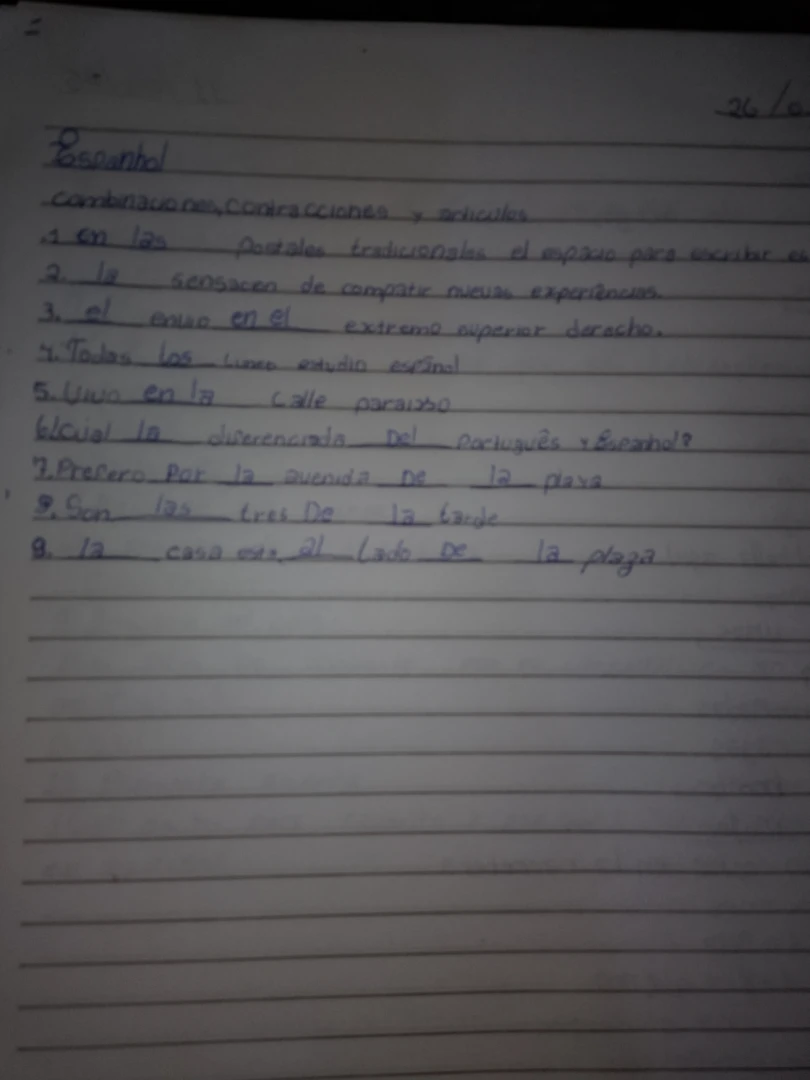 26/0
Espanhol
combinaciones, contracciones y articulos
1 en las postales tradicionales el espacio para escribir es
2. la sensacen de compatir nuevas experiências.
3. el envio en el extremo superior derecho.
4. Todos los estudio español
5. Vivo en la calle paraiso
6. ¿Cual la diferenciada Del Português y Espanhol?
7. Prefero por la avenida De la playa
8. Son las tres De la tarde
9. la casa esta al lado De la plaza